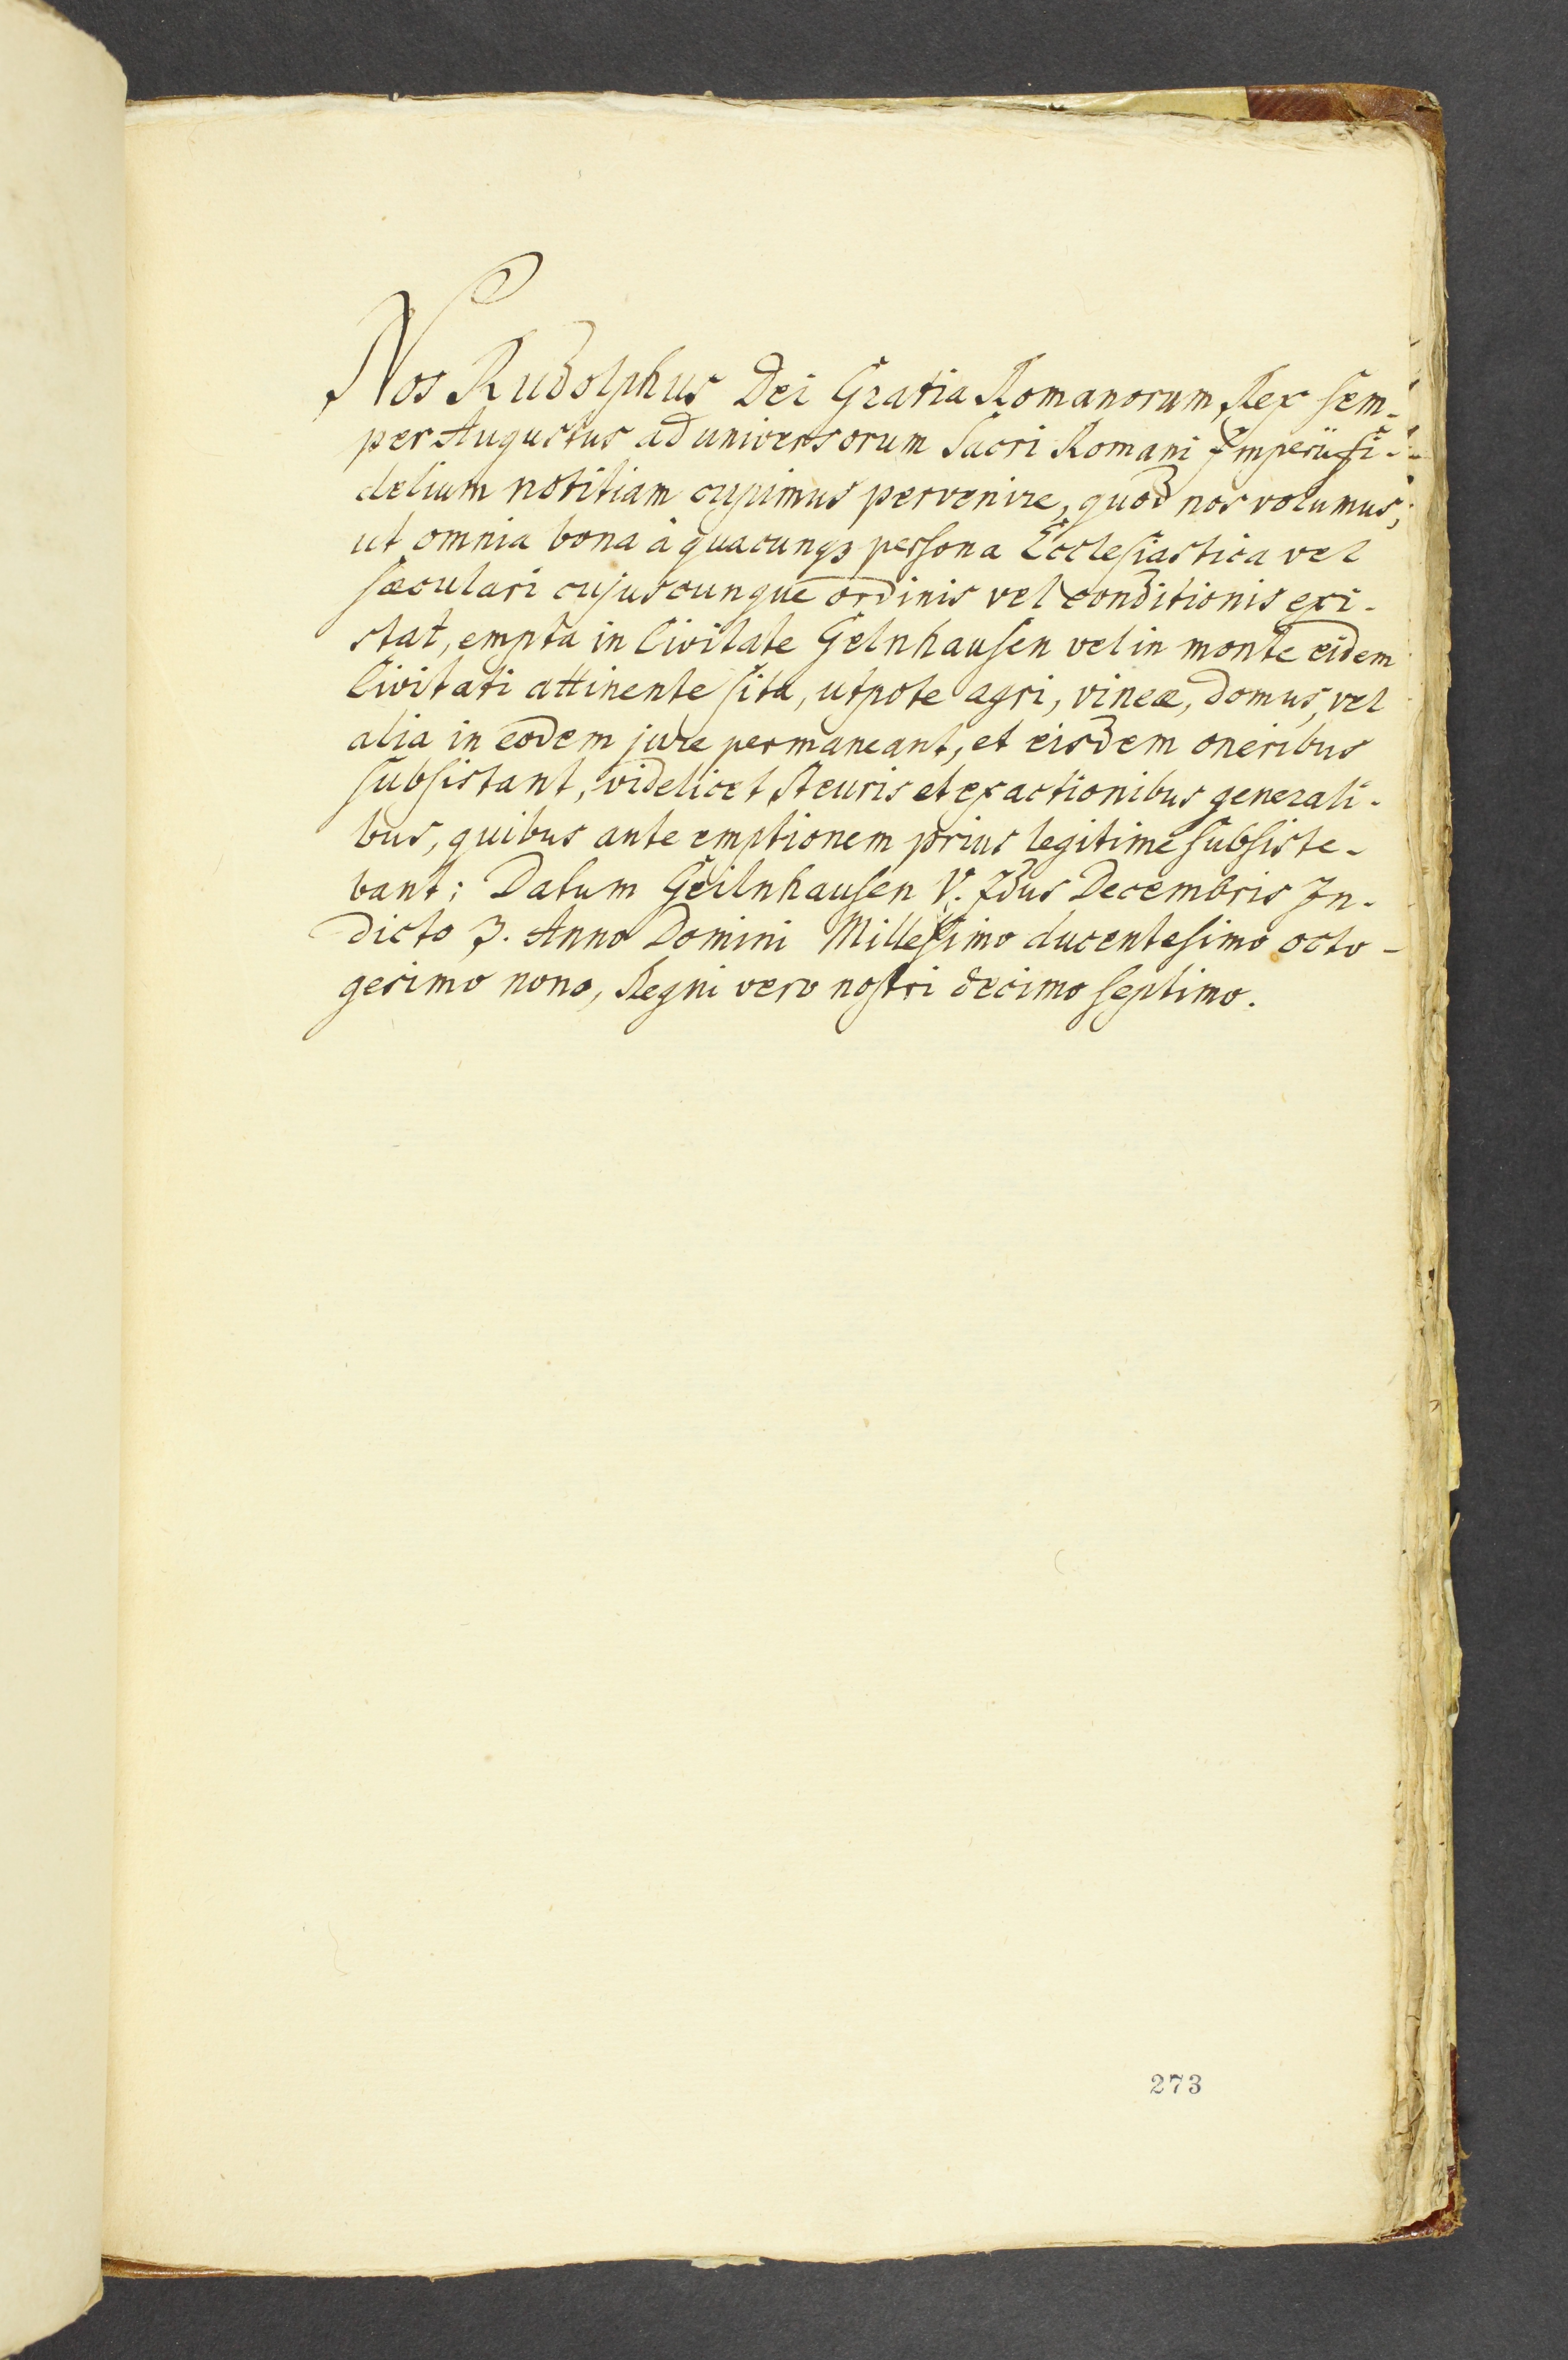 Nos Rudolphus Dei Gratia Romanorum Rex sem-
per Augustus ad universorum Sacri Romani Imperii fi-
delium notitiam cupimus pervenire, quod nos volumus,
ut omnia bona à quacunqꝫ persona Ecclesiastica vel
sæculari cujuscunque ordinis vel conditionis exi-
stat, empta in Civitate Gelnhausen vel in monte eidem
Civitati attinente sita, utpote agri, vineæ, domus, vel
alia in eodem jure permaneant, et eisdem oneribus
subsistant, videlicet steuris et exactionibus generali-
bus, quibus ante emptionem prius legitimè subsiste-
bant; Datum Geilnhausen V. Idus Decembris In-
dicto 3. Anno Domini Millesimo ducentesimo octo-
gesimo nono, Regni vero nostri decimo septimo.
273